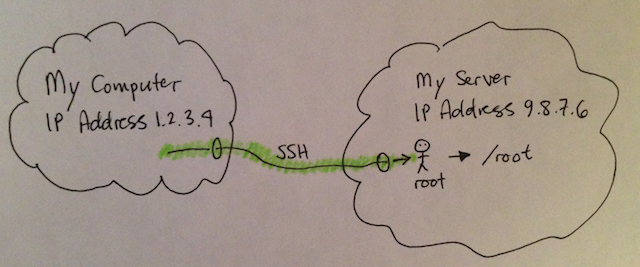 My Computer
IP Address 1.2.3.4
SSH
My Server
IP Address 9.8.7.6
root
/root